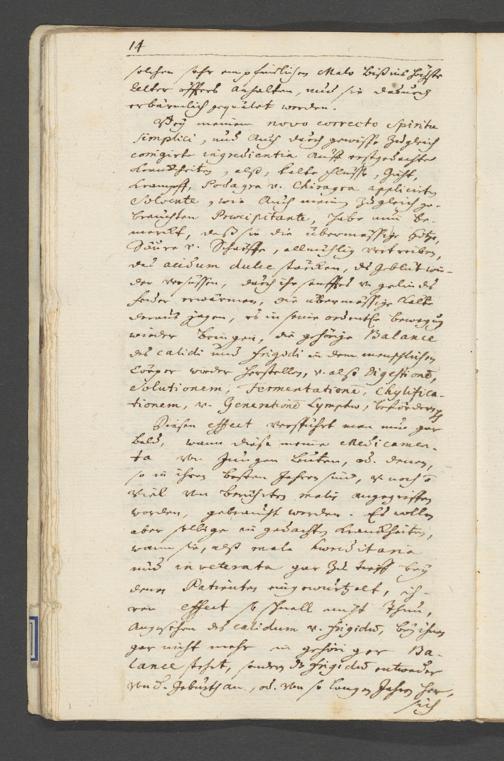 14
solchen sehr empfindlichen Malo biß ins
selber öffters anhalten, und sie dadurch
erbärmlich gequälet werden.
Bey meinem novo correcto Spiritu
simplici, und auch durch gewisse zugleich
corrigirte ingredientia auff erstgedachte
Kranckheiten, als, kalte Flüsse, Gicht,
Krampff, Podagra v. Chiragra applicirte
Solvente, wie auch meine zugleich ge-
brauchten Præcipitante, habe nun be-
merckt, daß sie die übermässige Hitze,
Säure v. Schärffe, allmählig vertreiben,
das acidum dulce stärcken, das Geblüt wie-
der versüssen, durch ihr sanfftes v. gelindes
erwärmen, die übermässige Kälte
daraus jagen, es in seine ordentl. bewegung
wieder bringen, die gehörige Balance
des calidi und frigidi in dem menschlichen
Cörper wieder herstellen, v. also Digestionē,
Solutionem, Fermentationē, Chylifica-
tionem, v. Generationē Lymphæ, befördern.
Diesen effect verspühret man nur gar
bald, wann diese meine Medicamen-
ta von Jungen Leuten, od. denen,
so in ihren besten Jahren sind, v. noch
viel von berührten malis angegriffen
worden, gebraucht werden. Es wollen
aber selbige in gedachten Kranckheiten,
wann sie, alß mala hæreditaria
und inveterata gar zu tieff bey
denen Patienten eingewurtzelt, ih-
ren effect so schnell nicht thun,
Angesehen das calidum v. frigidum, bey ihnen
gar nicht mehr in gehöriger Ba-
lance steht, sondern das frigidum entweder
von d. Geburth an, od. von so langen Jahren her,
sich